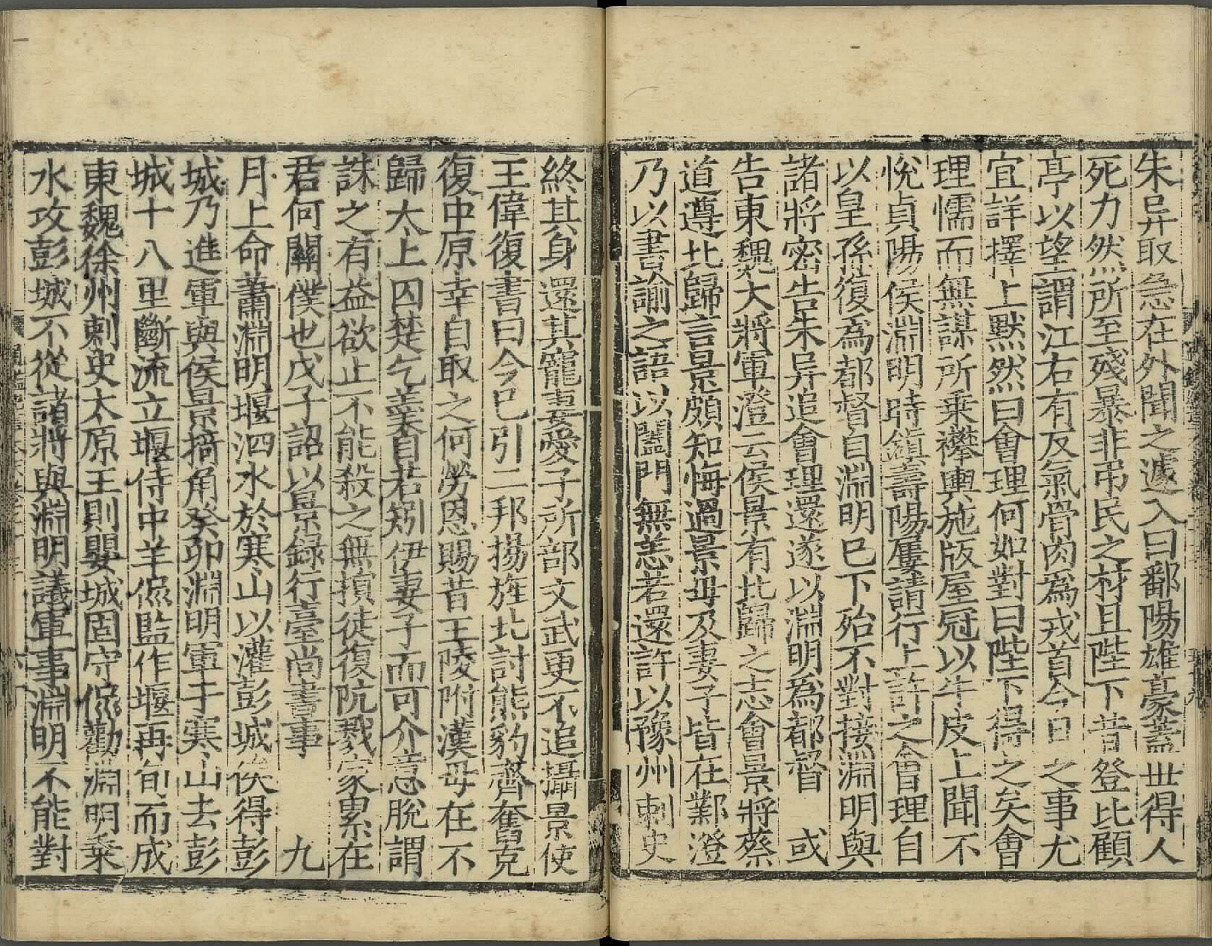 朱异取急在外聞之遽入曰鄱陽雄豪蓋世得人
死力然所至殘暴非弔民之材且陛下昔登北顧
亭以望謂江右有反氣骨肉爲戎首今日之事尤
宜詳擇上默然曰會理何如對曰陛下得之矣會
理懦而無謀所乗襻輿施版屋冠以牛皮上聞不
悅貞陽侯淵明時鎮壽陽屢請行上許之會理自
以皇孫復爲都督自淵明巳下殆不對接淵明與
諸將密告朱异追會理還遂以淵明為都督 或
告東魏大將軍澄云侯景有北歸之志會景將蔡
道遵北歸言景頗知悔過景母及妻子皆在鄴澄
乃以書諭之語以闔門無恙若還許以豫州刺史
終其身還其寵妻愛子所部文武更不追攝景使
王偉復書曰今巳引二邦揚旌北討熊豹齊奮克
復中原幸自取之何勞恩賜昔王陵附漢母在不
歸太上囚楚乞羹自若矧伊妻子而可介意脫謂
誅之有益欲止不能殺之無損徒復阬戮家累在
君何關僕也戊子詔以景録行臺尚書事 九
月上命蕭淵明堰泗水於寒山以灌彭城俟得彭
城乃進軍與侯景掎角癸卯淵明軍于寒山去彭
城十八里斷流立堰侍中羊侃監作堰再旬而成
東魏徐州刺史太原王則嬰城固守侃勸淵明乗
水攻彭城不從諸將與淵明議軍事淵明不能對